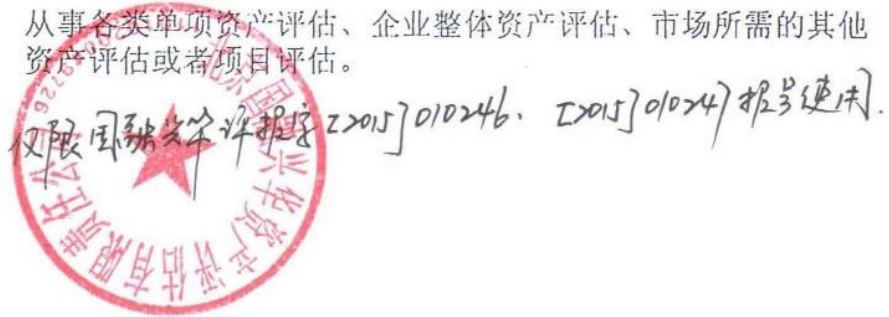 从事各类单项资产评估、企业整体资产评估、市场所需的其他
资产评估或者项目评估。
仅限国融兴华评报字[2015]010246、[2015]010247报号使用.
北京国融兴华资产评估有限责任公司